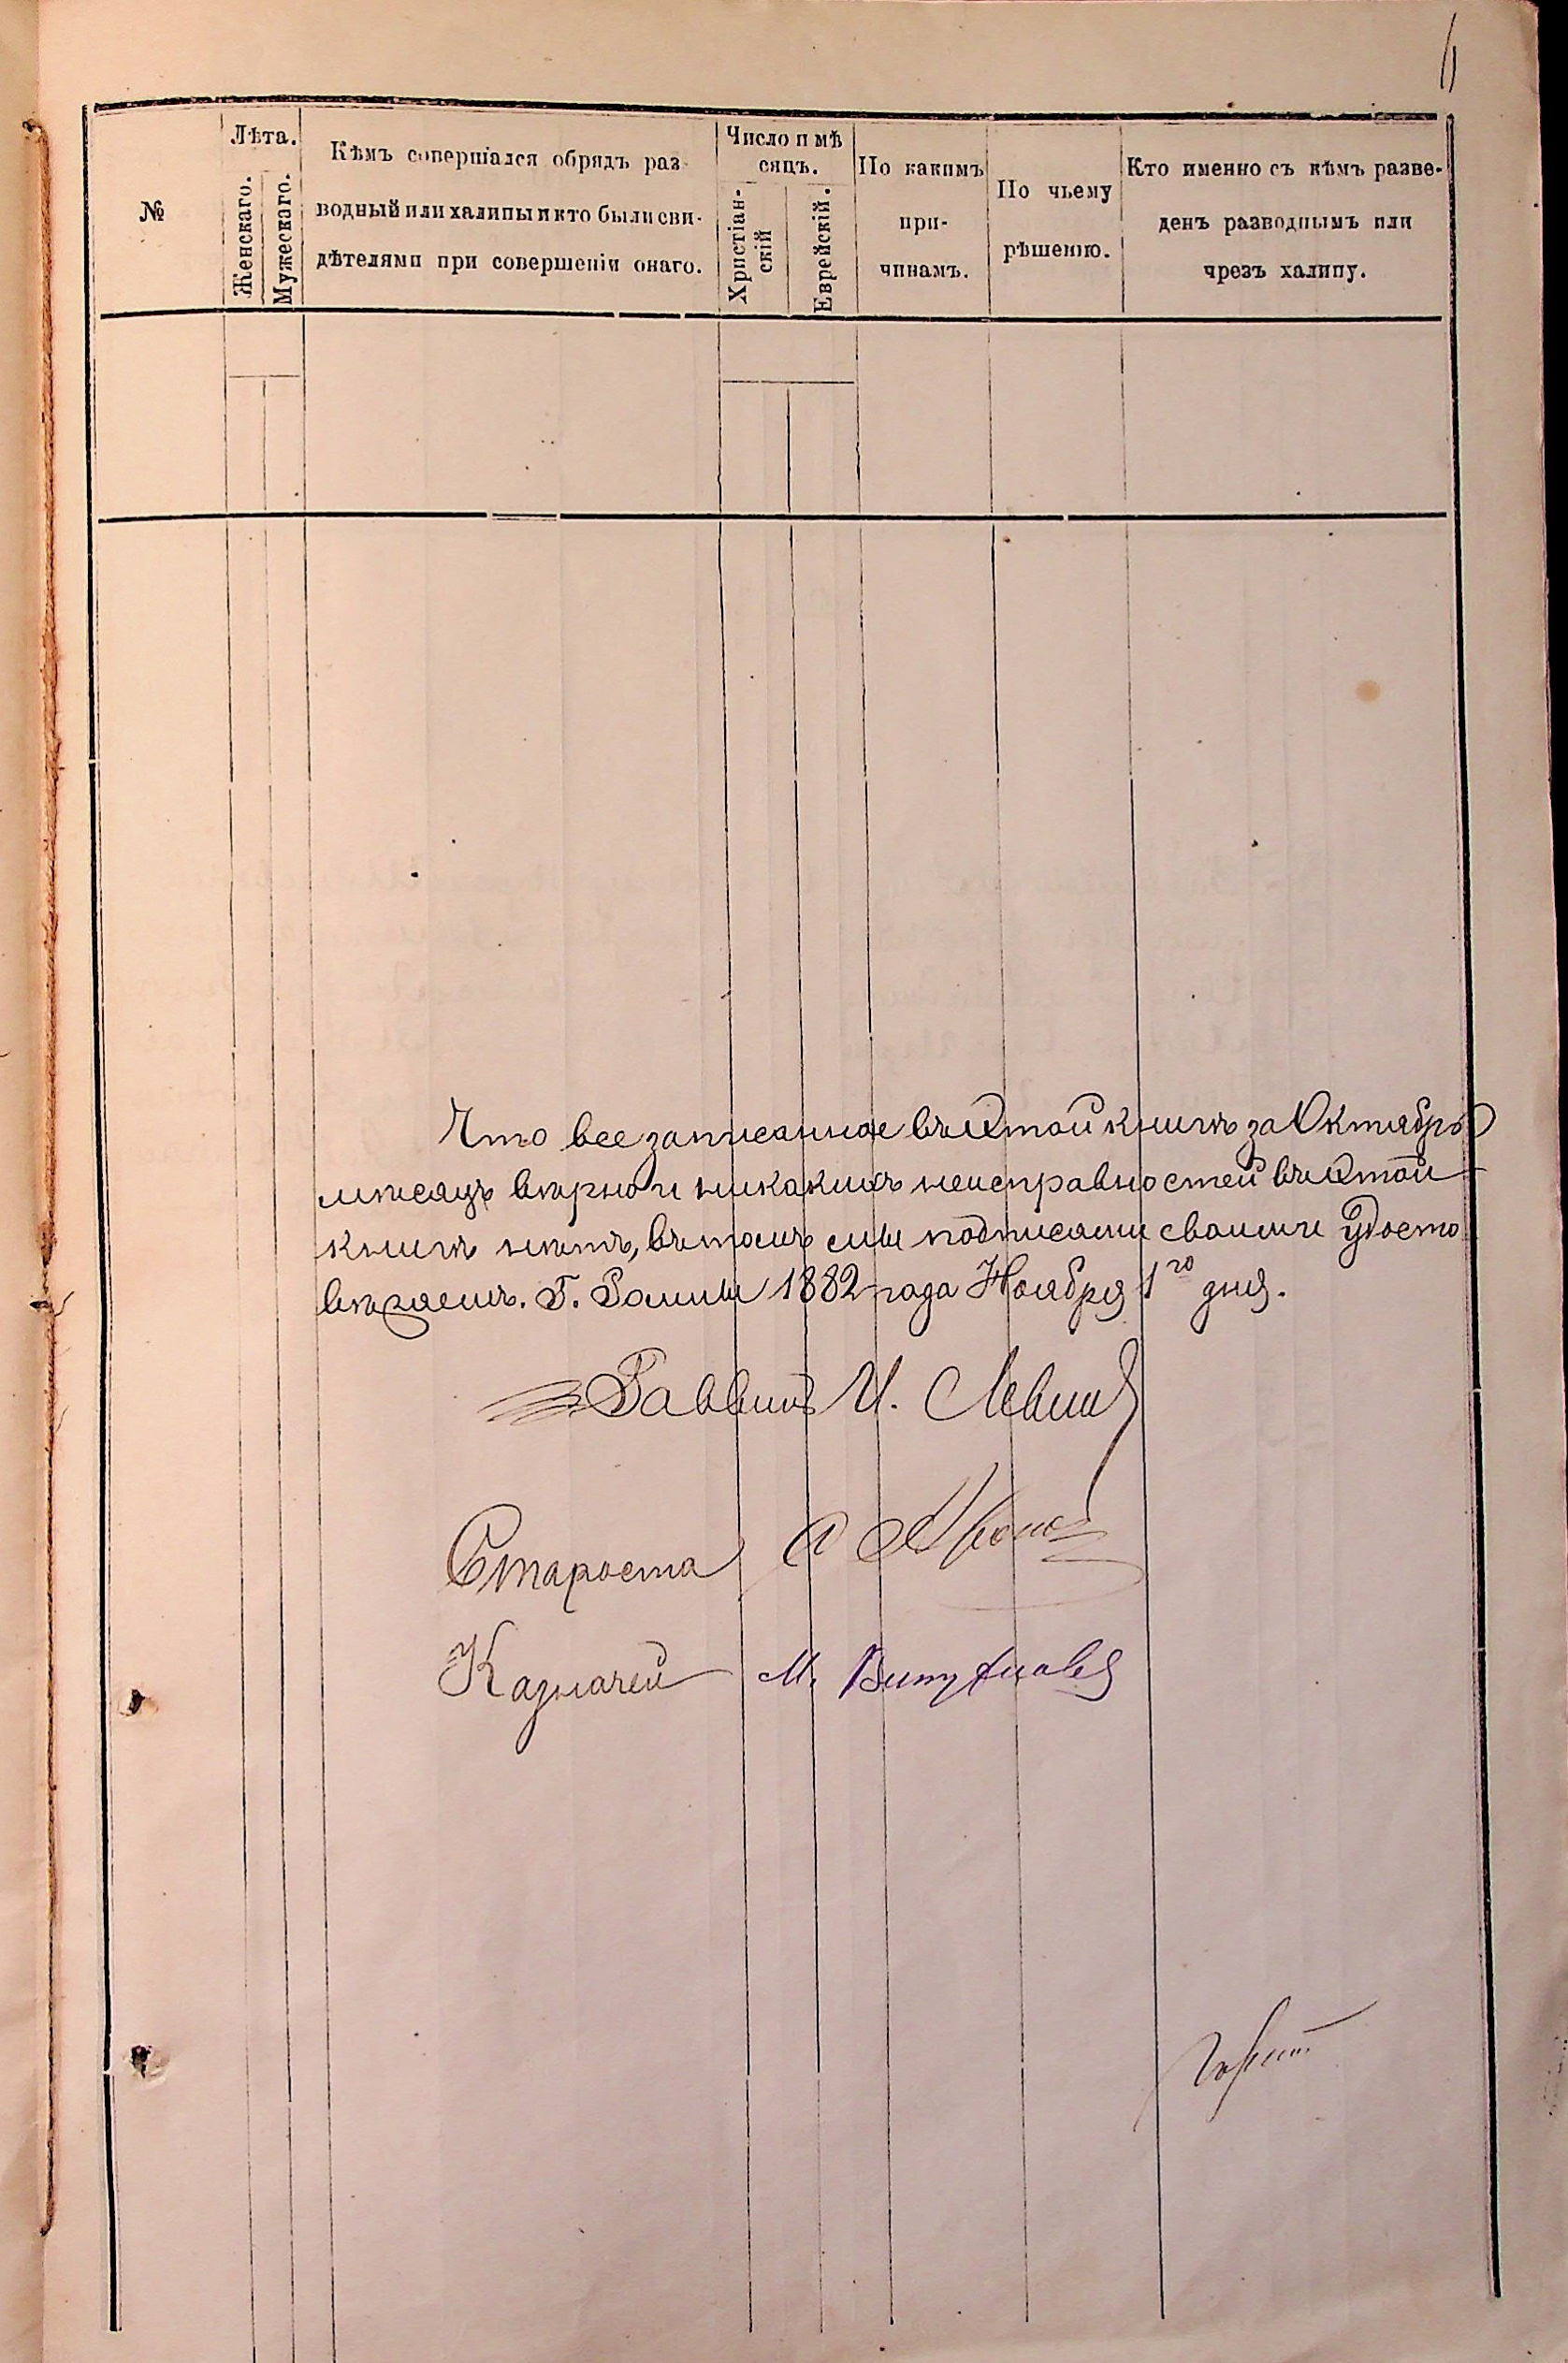 №
Лѣта.
Женскаго.
Мужескаго.
Кѣмъ совершался обрядъ раз-
водный или халицы и кто были сви-
дѣтелями при совершеніи онаго.
Число и мѣ
сяцъ.
Христіан-
скій
Еврейскій.
По какимъ
при-
чинамъ.
По чьему
рѣшенію.
Кто именно съ кѣмъ разве-
денъ разводнымъ или
чрезъ халицу.
Что все записанное въ этой книгѣ за Октябрь
мѣсяцъ вѣрно и никакихъ неисправностей въ этой
книгѣ нѣтъ, въ томъ мы подписями своими удосто
вѣряемъ. Г. Ромны 1882 года Ноября 1го дня.
Раввинъ И. Левин
Староста
Казначей М.